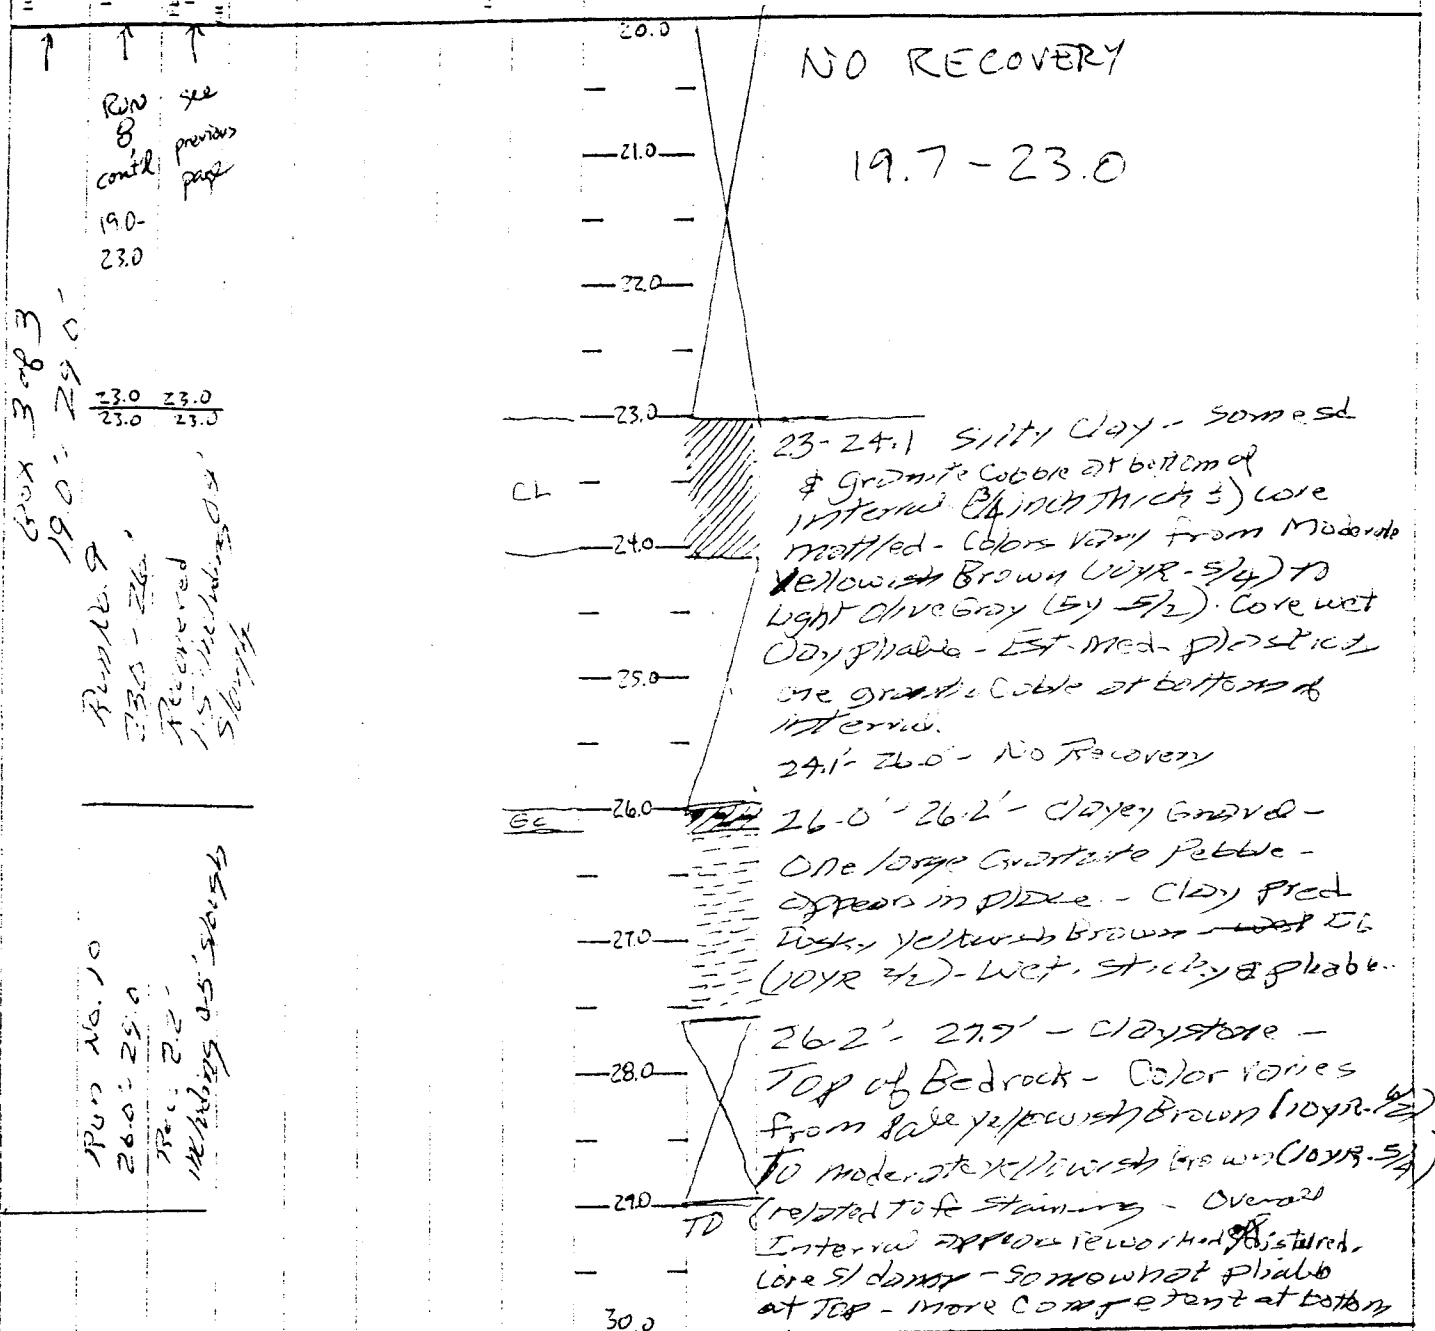 ↑ ↑ ↑
RUN see
8 previous
cont'd page
19.0-
23.0
Box 3 of 3
19.0'- 29.0'
23.0 23.0
23.0 23.0
Run No. 9
23.0 - 26.0'
Recovered
1.5' including
Slough
Run No. 10
26.0'- 29.0
Rec. 2.2'
including 0.5' Slough
CL
GC
20.0
21.0
22.0
23.0
24.0
25.0
26.0
27.0
28.0
29.0
TD
30.0
NO RECOVERY
19.7 - 23.0
23- 24.1 Silty Clay - Some sd
& Granite Cobble at bottom of
interval (3/4 inch thick ±) core
mottled - Colors vary from Moderate
Yellowish Brown (10YR-5/4) to
Light Olive Gray (5Y 5/2). Core wet
Clay pliable - Est. Med. plasticity
one granitic Coble at bottom of
interval.
24.1'- 26.0'- No Recovery
26.0'- 26.2'- Clayey Gravel -
One large Quartzite Pebble -
appears in place - Clay pred
Dusky Yellowish Brown
(10YR 2/2) - Wet. Sticky & pliable.
26.2'- 27.7' - Claystone -
Top of Bedrock - Color varies
from pale yellowish Brown (10YR-6/2)
To moderate yellowish Brown (10YR-5/4)
(related to fe Staining - Overall
Interval appears reworked disturbed.
Core sl damp - Somewhat pliable
at Top - More Competent at bottom